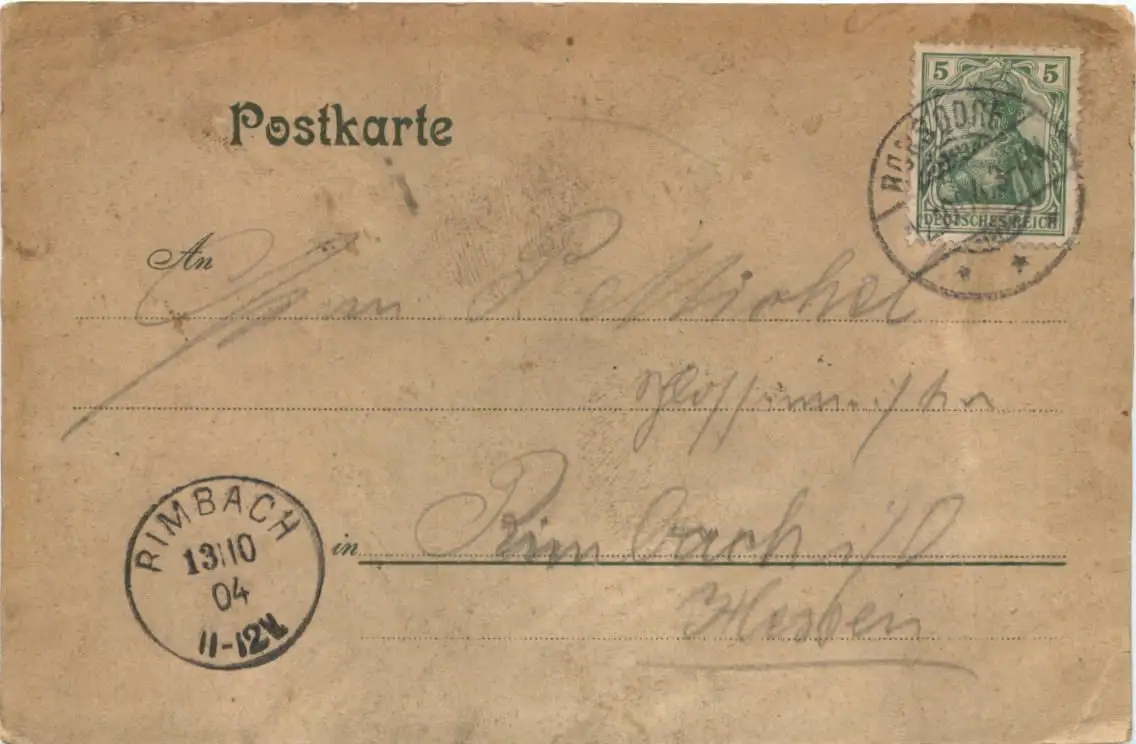 Postkarte
5 5
DEUTSCHES REICH
An
Herrn P Michel
Schlossermeister
RIMBACH
13 10
04
11-12V
in Rimbach i/O
Hessen